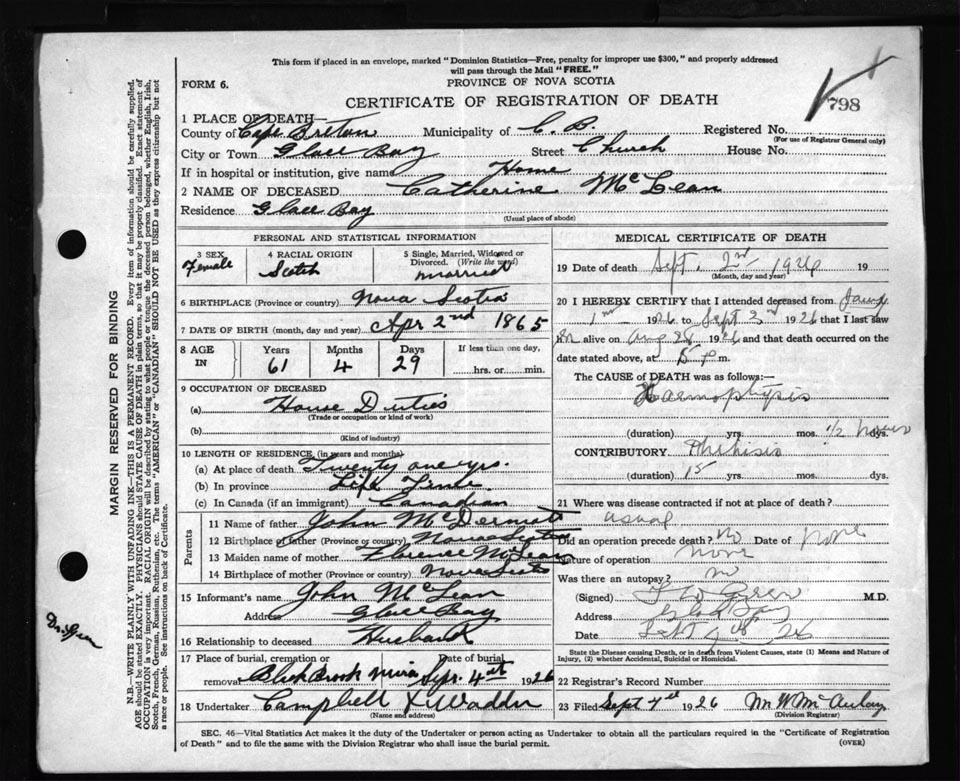 This form if placed in an envelope, marked "Dominion Statistics—Free, penalty for improper use $300," and properly addressed
will pass through the Mail "FREE."
FORM 6.
PROVINCE OF NOVA SCOTIA
798
CERTIFICATE OF REGISTRATION OF DEATH
1 PLACE OF DEATH—
County of Cape Breton Municipality of C. B. Registered No.
(For use of Registrar General only)
City or Town Glace Bay Street Church House No.
If in hospital or institution, give name Home
2 NAME OF DECEASED Catherine McLean
Residence Glace Bay
(Usual place of abode)
PERSONAL AND STATISTICAL INFORMATION
3 SEX Female
4 RACIAL ORIGIN Scotch
5 Single, Married, Widowed or Divorced. (Write the word) married
6 BIRTHPLACE (Province or country) Nova Scotia
7 DATE OF BIRTH (month, day and year) Apr 2nd 1865
8 AGE IN Years Months Days If less than one day,
61 4 29 hrs. or min.
9 OCCUPATION OF DECEASED
(a) House Duties
(Trade or occupation or kind of work)
(b)
(Kind of industry)
10 LENGTH OF RESIDENCE (in years and months)
(a) At place of death Twenty one yrs.
(b) In province Life Time
(c) In Canada (if an immigrant) Canadian
Parents
11 Name of father John McDermett
12 Birthplace of father (Province or country) Nova Scotia
13 Maiden name of mother Florence McLean
14 Birthplace of mother (Province or country) Nova Scotia
15 Informant's name John McLean
Address Glace Bay
16 Relationship to deceased Husband
17 Place of burial, cremation or removal Black Brook Mira Date of burial Sept. 4th 1926
18 Undertaker Campbell & Wadden
(Name and address)
MEDICAL CERTIFICATE OF DEATH
19 Date of death Sept. 2nd 1926 19
(Month, day and year)
20 I HEREBY CERTIFY that I attended deceased from
1926 to Sept 2nd 1926 that I last saw
alive on Aug 28 1926 and that death occurred on the
date stated above, at 5 p m.
The CAUSE of DEATH was as follows:—
Haemoptysis
(duration) yrs. mos. 1/2 hours dys.
CONTRIBUTORY Phthisis
(duration) 15 yrs. mos. dys.
21 Where was disease contracted if not at place of death?
usual
Did an operation precede death? no Date of none
Nature of operation none
Was there an autopsy? no
(Signed) M.D.
Address Glace Bay
Date Sept 26
State the Disease causing Death, or in death from Violent Causes, state (1) Means and Nature of
Injury, (2) whether Accidental, Suicidal or Homicidal.
22 Registrar's Record Number
23 Filed Sept 4th 1926
(Division Registrar)
SEC. 46—Vital Statistics Act makes it the duty of the Undertaker or person acting as Undertaker to obtain all the particulars required in the "Certificate of Registration
of Death" and to file the same with the Division Registrar who shall issue the burial permit.
(OVER)
MARGIN RESERVED FOR BINDING
N.B.—WRITE PLAINLY WITH UNFADING INK—THIS IS A PERMANENT RECORD. Every item of information should be carefully supplied.
AGE should be stated EXACTLY. PHYSICIANS should STATE CAUSE OF DEATH in plain terms, so that it may be properly classified. Exact statement of
OCCUPATION is very important. RACIAL ORIGIN will be described by stating to what people or tongue the deceased person belonged, whether English, Irish,
Scotch, French, German, Russian, Ruthenian, etc. The terms "AMERICAN" or "CANADIAN" SHOULD NOT BE USED as they express citizenship but not
a race or people. See instructions on back of Certificate.